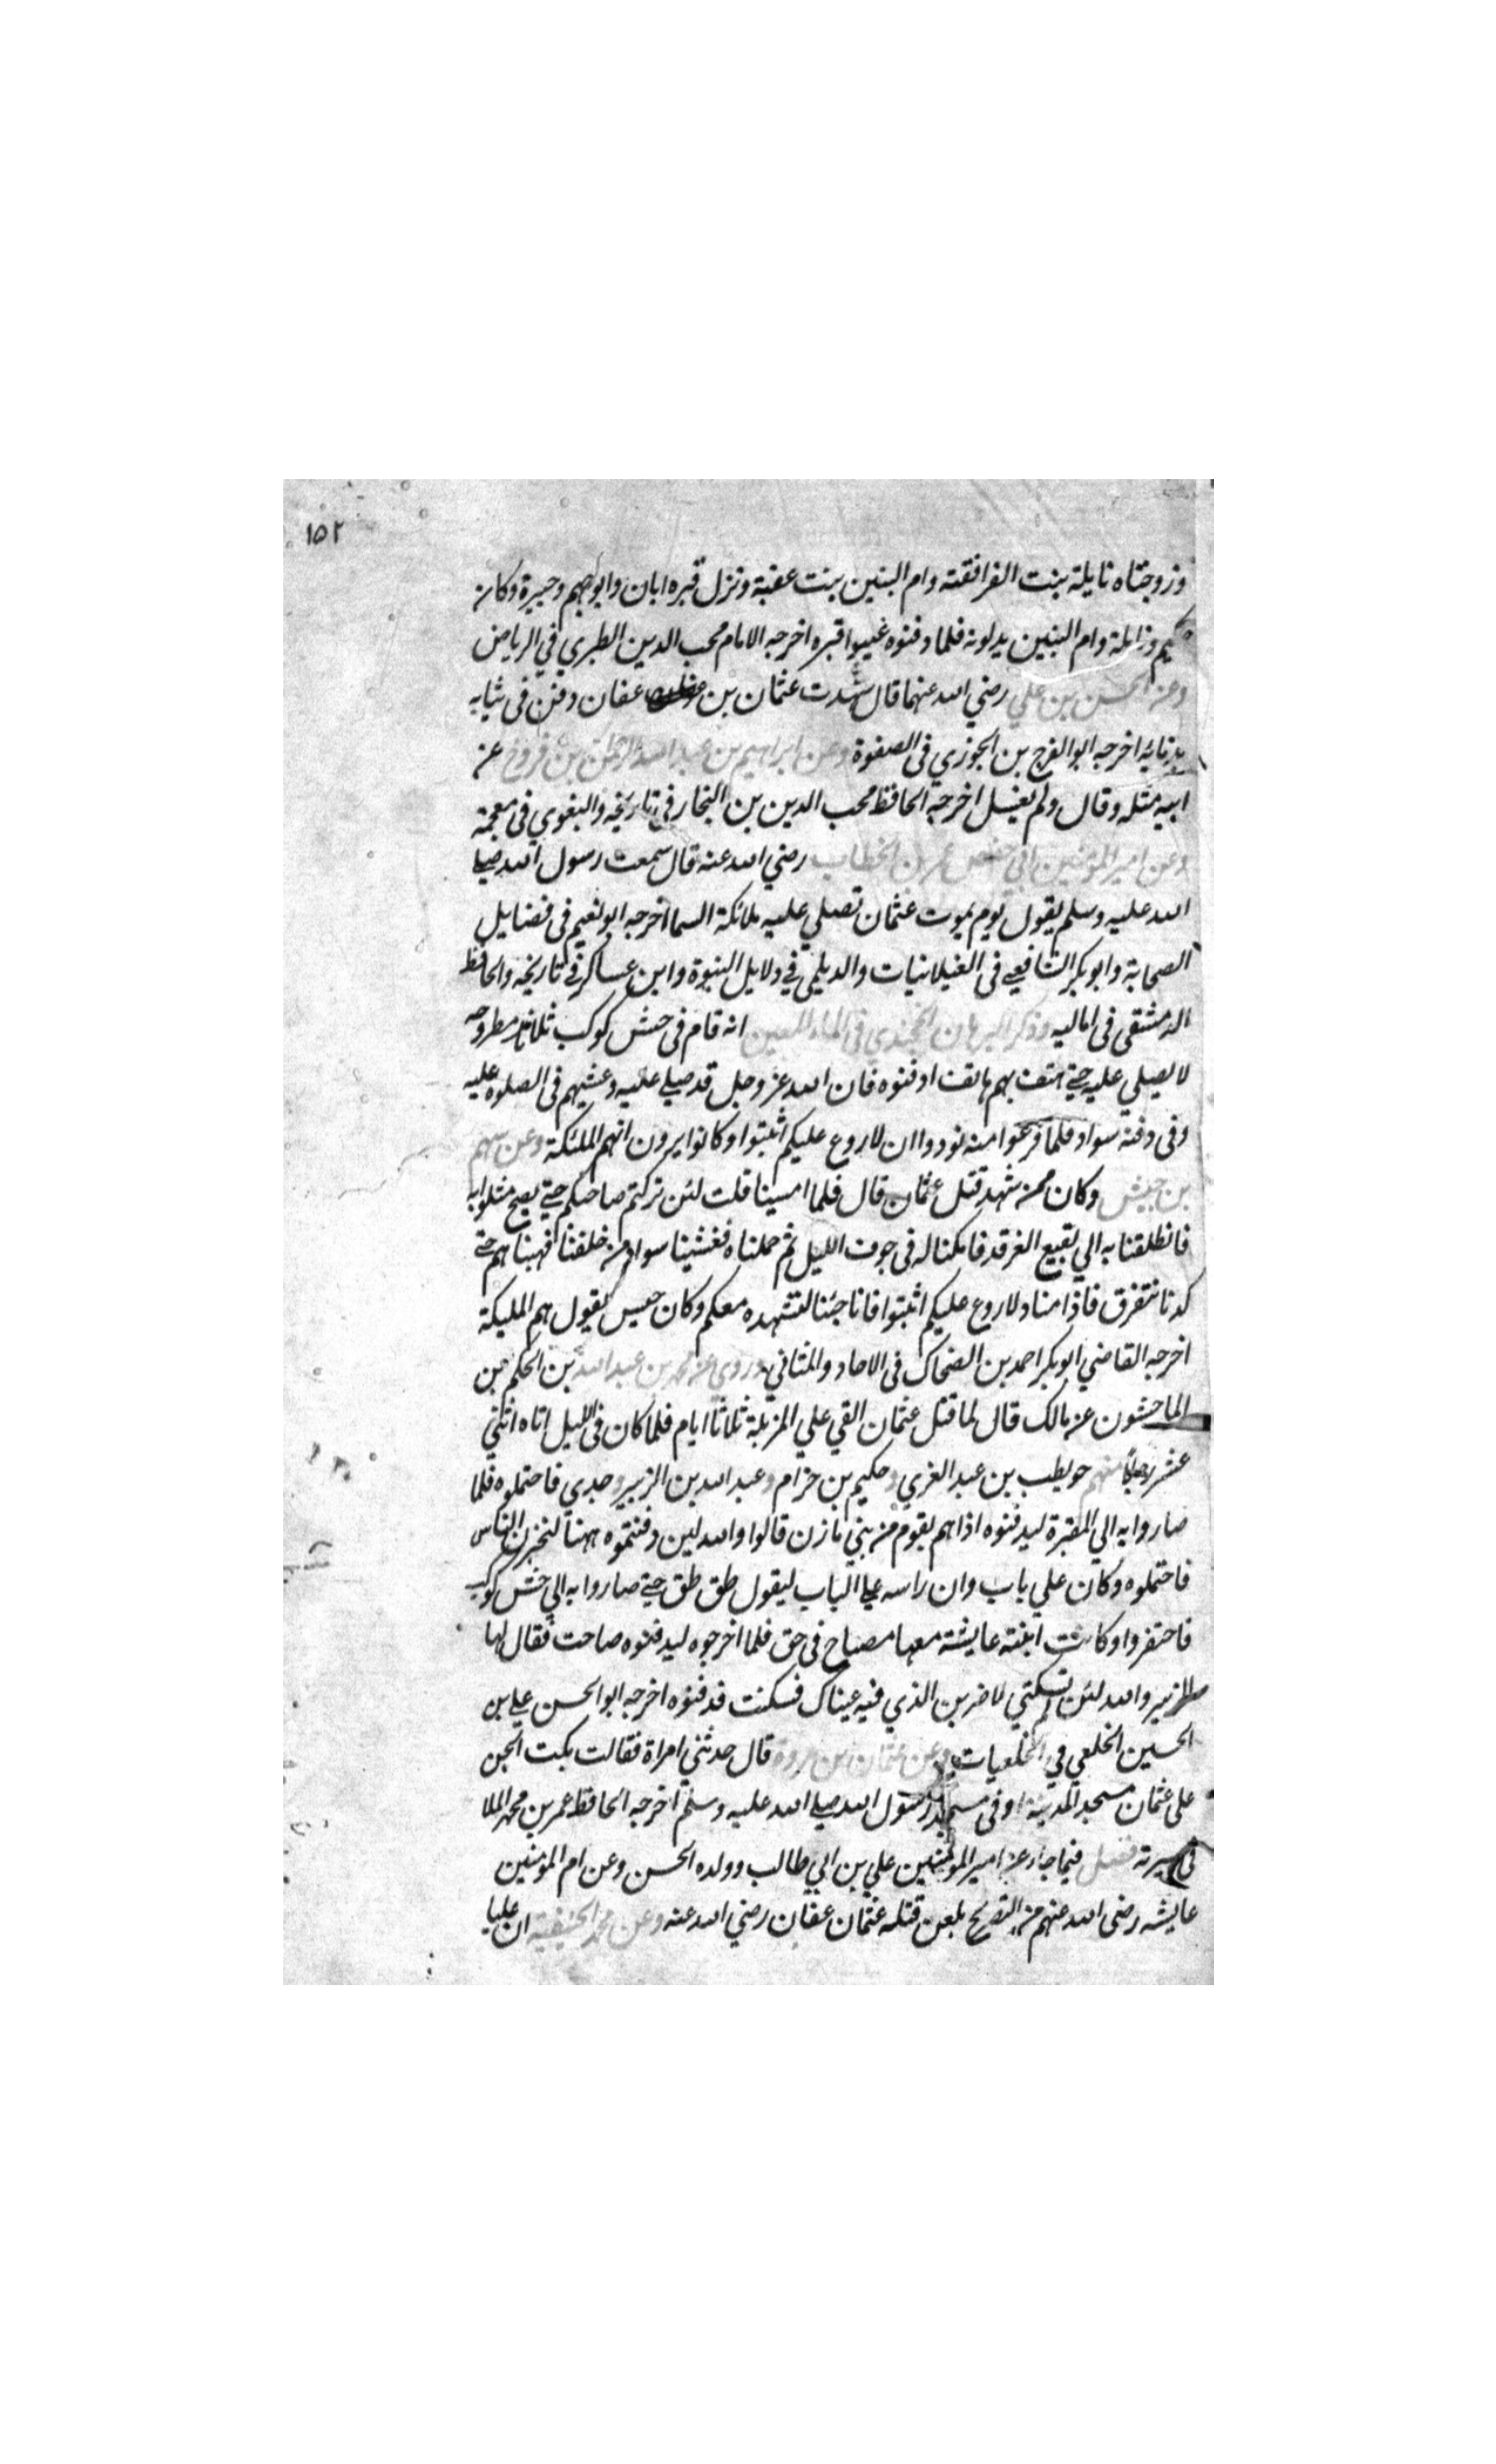 ١٥٢
وزوجتاه نايلة بنت الفرافقته وام البنين بنت عقبة ونزل قبره ابان وابو جهم وجبيرة وكان
حكيم ونايلة وام البنين يدلونه فلما دفنوه غيبوا قبره اخرجه الامام محب الدين الطبري في الرياض
وعن الحسن بن علي رضي الله عنهما قال شهدت عثمان بن عفان دفن في ثيابه
بدمايه اخرجه ابو الفرج بن الجوزي في الصفوة وعن ابراهيم بن عبد الله الرحمن بن فروخ عن
ابيه مثله وقال ولم يغسل اخرجه الحافظ محب الدين بن النجار في تاريخه والبغوي في معجمة
وعن امير المؤمنين ابي حفص عمر بن الخطاب رضي الله عنه قال سمعت رسول الله صلى
الله عليه وسلم يقول يوم يموت عثمان تصلي عليه ملائكة السما اخرجه ابو نعيم في فضايل
الصحابة وابو بكر الشافعي في الغيلانيات والديلمي في دلايل النبوة وابن عساكر في تاريخه والحافظ
الدمشقي في اماليه وذكر البرهان الخجندي في الماء المعين انه قام في حش كوكب ثلاثا مطروحه
لا يصلي عليه حتى هتف بهم هاتف ادفنوه فان الله عز وجل قد صلى عليه وغشيهم في الصلوة عليه
وفي دفنه سواد فلما فرغوا منه نودوا ان لا روع عليكم اثبتوا وكانوا يرون انهم الملئكة وعن سهم
بن حبيش وكان ممن شهد قتل عثمان قال فلما امسينا قلت لئن تركتم صاحبكم حتى يصبح مثلوا به
فانطلقنا به الي بقيع الغرقد فامكنا له في جوف الليل ثم حملناه فغشينا سواد من خلفنا فهبناهم حتى
كدنا نتفرق فاذا مناد لا روع عليكم اثبتوا فانا جئنا لنشهده معكم وكان حبيس يقول هم المليكة
اخرجه القاضي ابو بكر احمد بن الضحاك في الاحاد والمثاني وروي عن محمد بن عبد الله بن الحكم بن
الماجشون عن مالك قال لما قتل عثمان القي علي المزبلة ثلاثا ايام فلما كان في الليل اتاه اثني
عشر رجلا منهم حويطب بن عبد العزي وحكيم بن حزام وعبد الله بن الزبير وجدي فاحتملوه فلما
صاروا به الي المقبرة ليدفنوه اذا هم بقوم من بني مازن قالوا والله لين دفنتموه ههنا لنخبرن الناس
فاحتملوه وكان علي باب وان راسه على الباب ليقول طق طق حتى صاروا به الي حش كوكب
فاحتفروا وكانت ابنته عايشة معها مصباح في حق فلما اخرجوه ليدفنوه صاحت فقال لها
الزبير والله لئن لم تسكتي لاضربن الذي فيه عيناك فسكتت فدفنوه اخرجه ابو الحسن علي بن
الحسين الخلعي في الخلعيات وعن عثمان بن مروة قال حدثني امراة فقالت بكت الجن
على عثمان مسجد المدينة او في مسجد رسول الله صلى الله عليه وسلم اخرجه الحافظ عمر بن محمد الملا
في سيرته فصل فيما جاء عن امير المؤمنين علي بن ابي طالب وولده الحسن وعن ام المومنين
عايشه رضى الله عنهم من التصريح بلعن قتله عثمان عفان رضي الله عنه وعن محمد الحنيفية ان عليا